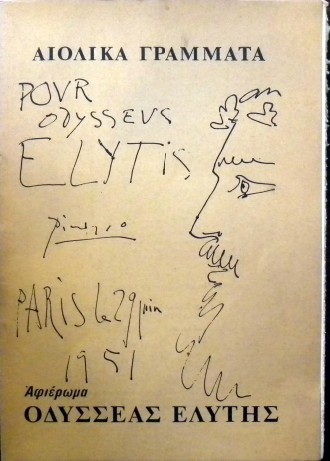 ΑΙΟΛΙΚΑ ΓΡΑΜΜΑΤΑ
POUR
ODYSSEUS
ELYTIS
Picasso
PARIS le 29 juin
1951
Ἀφιέρωμα
ΟΔΥΣΣΕΑΣ ΕΛΥΤΗΣ